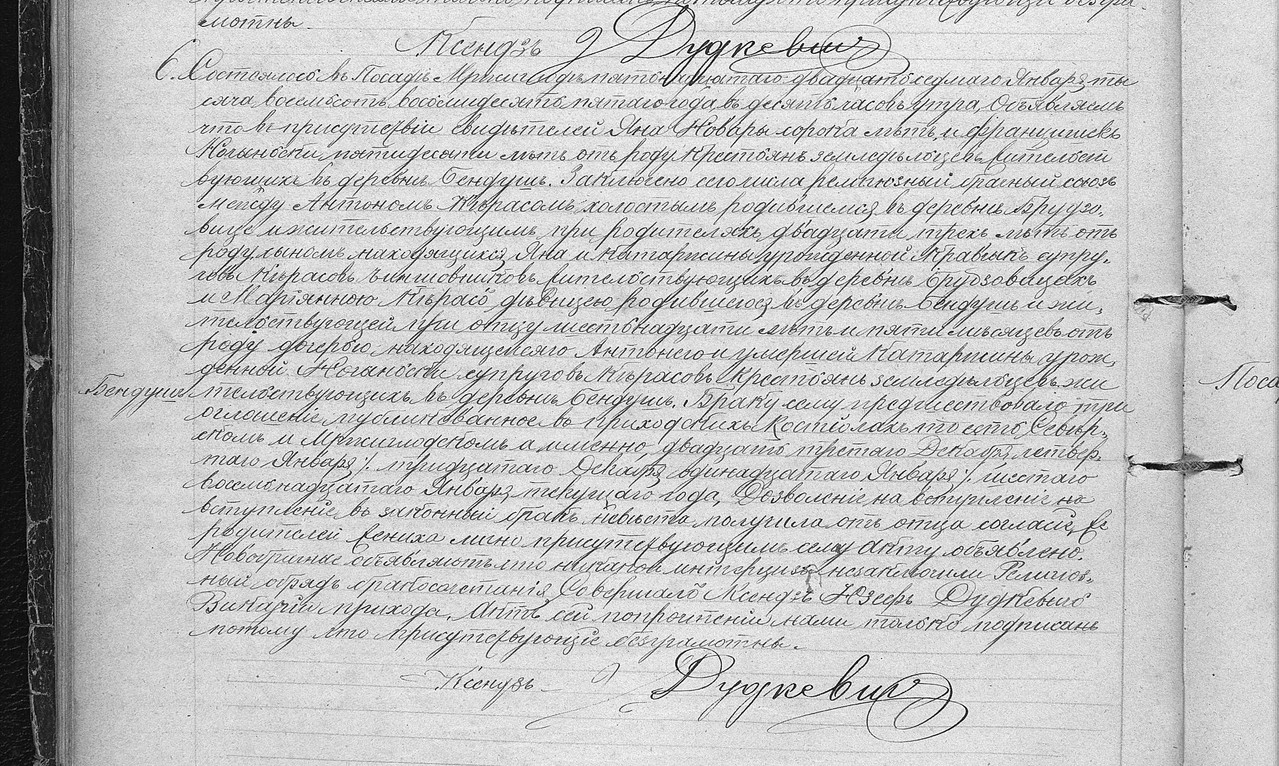 мотны.
Ксендзъ J Дудкевичъ
6. Состоялось въ Посадѣ Мржиглодѣ пятнадцатаго двадцать седмаго Января ты
сяча восемьсотъ восемьдесятъ пятаго года, въ десять часовъ утра, Объявляемъ
что въ присутствіи свидѣтелей Яна Новары сорока лѣтъ и Францишека
пятидесяти лѣтъ отъ роду Крестьянъ земледѣльцевъ жительст
вующихъ въ деревнѣ Бендушъ. Заключено сего числа религіозный брачный союзъ
Между Антономъ Кѣрасомъ, холостымъ родившемся въ деревнѣ Брудзо-
вице и жительствующимъ при родителяхъ, двадцати трехъ лѣтъ отъ
роду сыномъ находящихся Яна и Катаржины урожденной Кравчикъ супру-
говъ Кѣрасовъ жительствующихъ въ деревнѣ Брудзовицахъ
и Маріянною Кѣрасъ дѣвицею родившеюся въ деревнѣ Бендушъ и жи-
тельствующей при отцу шестьнадцати лѣтъ и пяти мѣсяцевъ отъ
роду дочерью находящемяго Антонего и умершей Катаржины урож-
денной супруговъ Кѣрасовъ Крестьянъ земледѣльцевъ жи
Бендушъ тельствующихъ въ деревнѣ Бендушъ. Браку сему предшествовало три
оглашеніе публикованное въ приходскихъ Костіолахъ то есть Севѣр-
скомъ и Мржиглодскомъ а именно, двадцать третаго Декабря четвер
таго Января /: тридцатаго Декабря одинадцатаго Января /: шестаго
восемьнадцатаго Января текущаго года, Дозволеніе на вступленіе на
вступленіе въ законный бракъ, невѣста получила отъ отца согласіе, Ее
родителей жениха лично присутствующимъ сему Акту объявлено.
Новобрачные объявляютъ что ни
ный обрядъ бракосочетанія Совершалъ Ксендзъ Юзефъ Дудкевичъ
Викарій прихода, Актъ сей попрочтеніи нами только подписанъ
потому что присутствующіе безграмотны.
Ксендзъ J Дудкевичъ
Поса